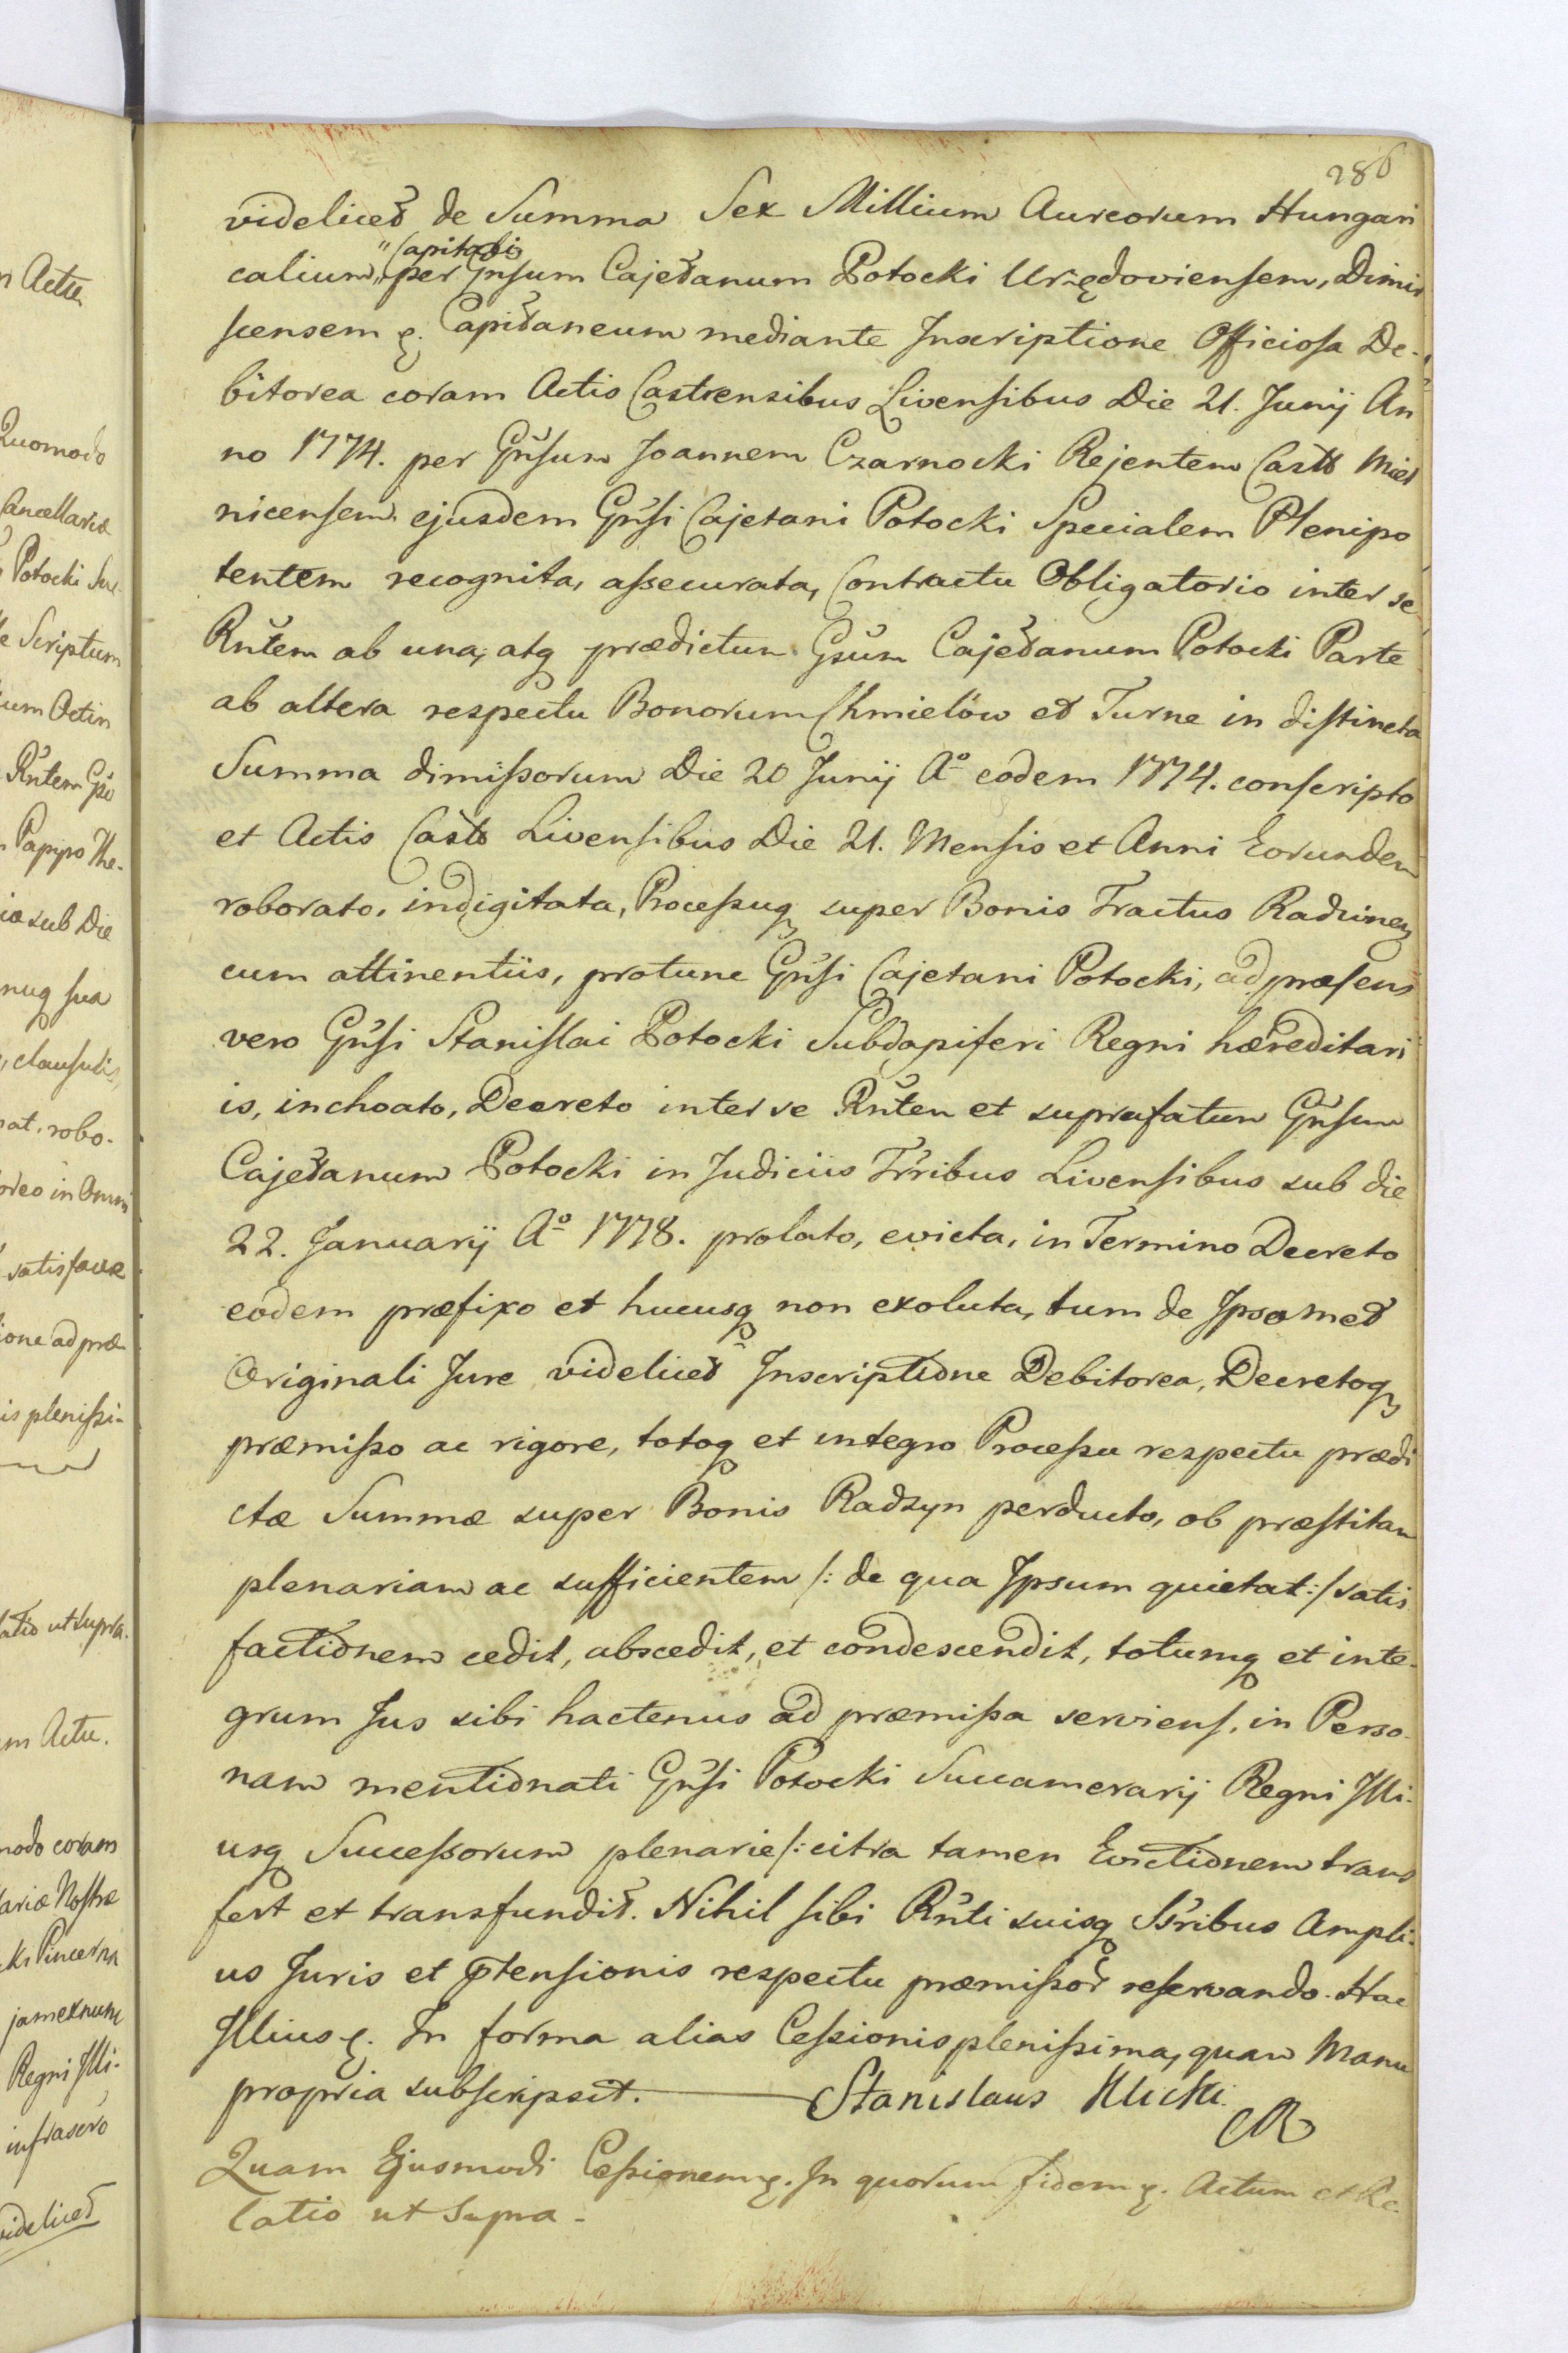 286
videlicet de Summa Sex Millium Aureorum Hungari
calium, "Capitalis per Gnsum Cajetanum Potocki Urzędoviensem, Dimir
scensem &. Capitaneum mediante Inscriptione Officiosa De-
bitorea coram Actis Castrensibus Livensibus Die 21. Junij An
no 1774. per Gnsum Joannem Czarnocki Rejentem Casts Miel
nicensem ejusdem Gnsi Cajetani Potocki Specialem Plenipo
tentem recognita, assecurata, Contractu Obligatorio inter se
Rntem ab una, atq prædictum Gsum Cajetanum Potocki Parte
ab altera respectu Bonorum Chmielów et Turne in distincta
Summa dimissorum Die 20 Junij Ao eodem 1774. conscripto
et Actis Casts Livensibus Die 21. Mensis et Anni Eorundem
roborato, indigitata, Processuq super Bonis Tractus Radzinen
cum attinentiis, protunc Gnsi Cajetani Potocki, ad præsens
vero Gnsi Stanislai Potocki Subdapiferi Regni hæreditari
is, inchoato, Decreto inter se Rntem et suprafatum Gnsum
Cajetanum Potocki in Judiciis Trribus Livensibus sub die
22. Januarij Ao 1778. prolato, evicta, in Termino Decreto
eodem præfixo et hucusq non exoluta, tum de Ipsomet
Originali Jure videlicet Inscriptione Debitorea, Decretoq
præmisso ac rigore, totoq et integro Processu respectu prædi
ctæ Summæ super Bonis Radzyn perducto, ob præstitam
plenariam ac sufficientem /: de qua Ipsum quietat :/ satis
factionem cedit, abscedit, et condescendit, totumq et inte-
grum Jus sibi hactenus ad præmissa serviens, in Perso-
nam mentionati Gnsi Potocki Succamerarij Regni Illi-
usq Successorum plenarie /: citra tamen Evictionem trans
fert et transfundit. Nihil sibi Rnti suisq Ssribus Ampli-
us Juris et ptensionis respectu præmissor reservando. Hac
Illius &. In forma alias Cessionis plenissima, quam Manu
propria subscripsit. Stanislaus Klicki
Quam Ejusmodi Cessionem &. In quorum fidem &. Actum et Re-
latio ut Supra.
n Actu
Quomodo
Cancellariæ
Potocki Suc-
Scriptum
um Actin
Rntem Gsi
Papyro The-
ia sub Die
nuq sua
, clausulis,
at. robo-
oreo in Omni
satisfacere
ione ad præ
is plenissi-
atio ut supra.
em Actu.
modo coram
lariæ Nostræ
ki Pincerna
jamexnunc
Regni Illi-
infrascro
videlicet